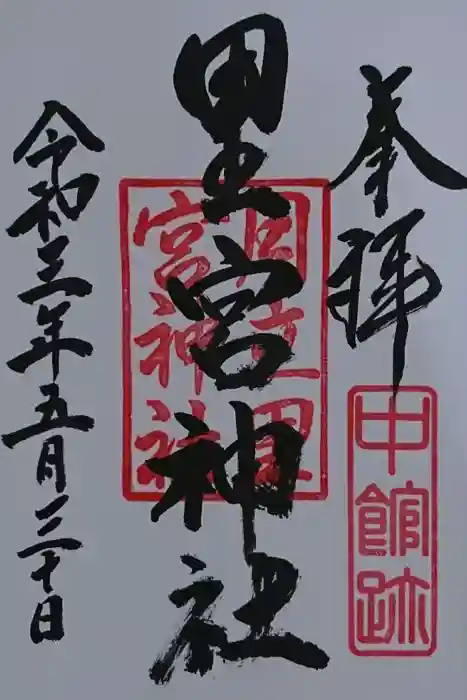 奉拝
中館跡
里宮神社
立里
宮神社
令和三年五月三十日